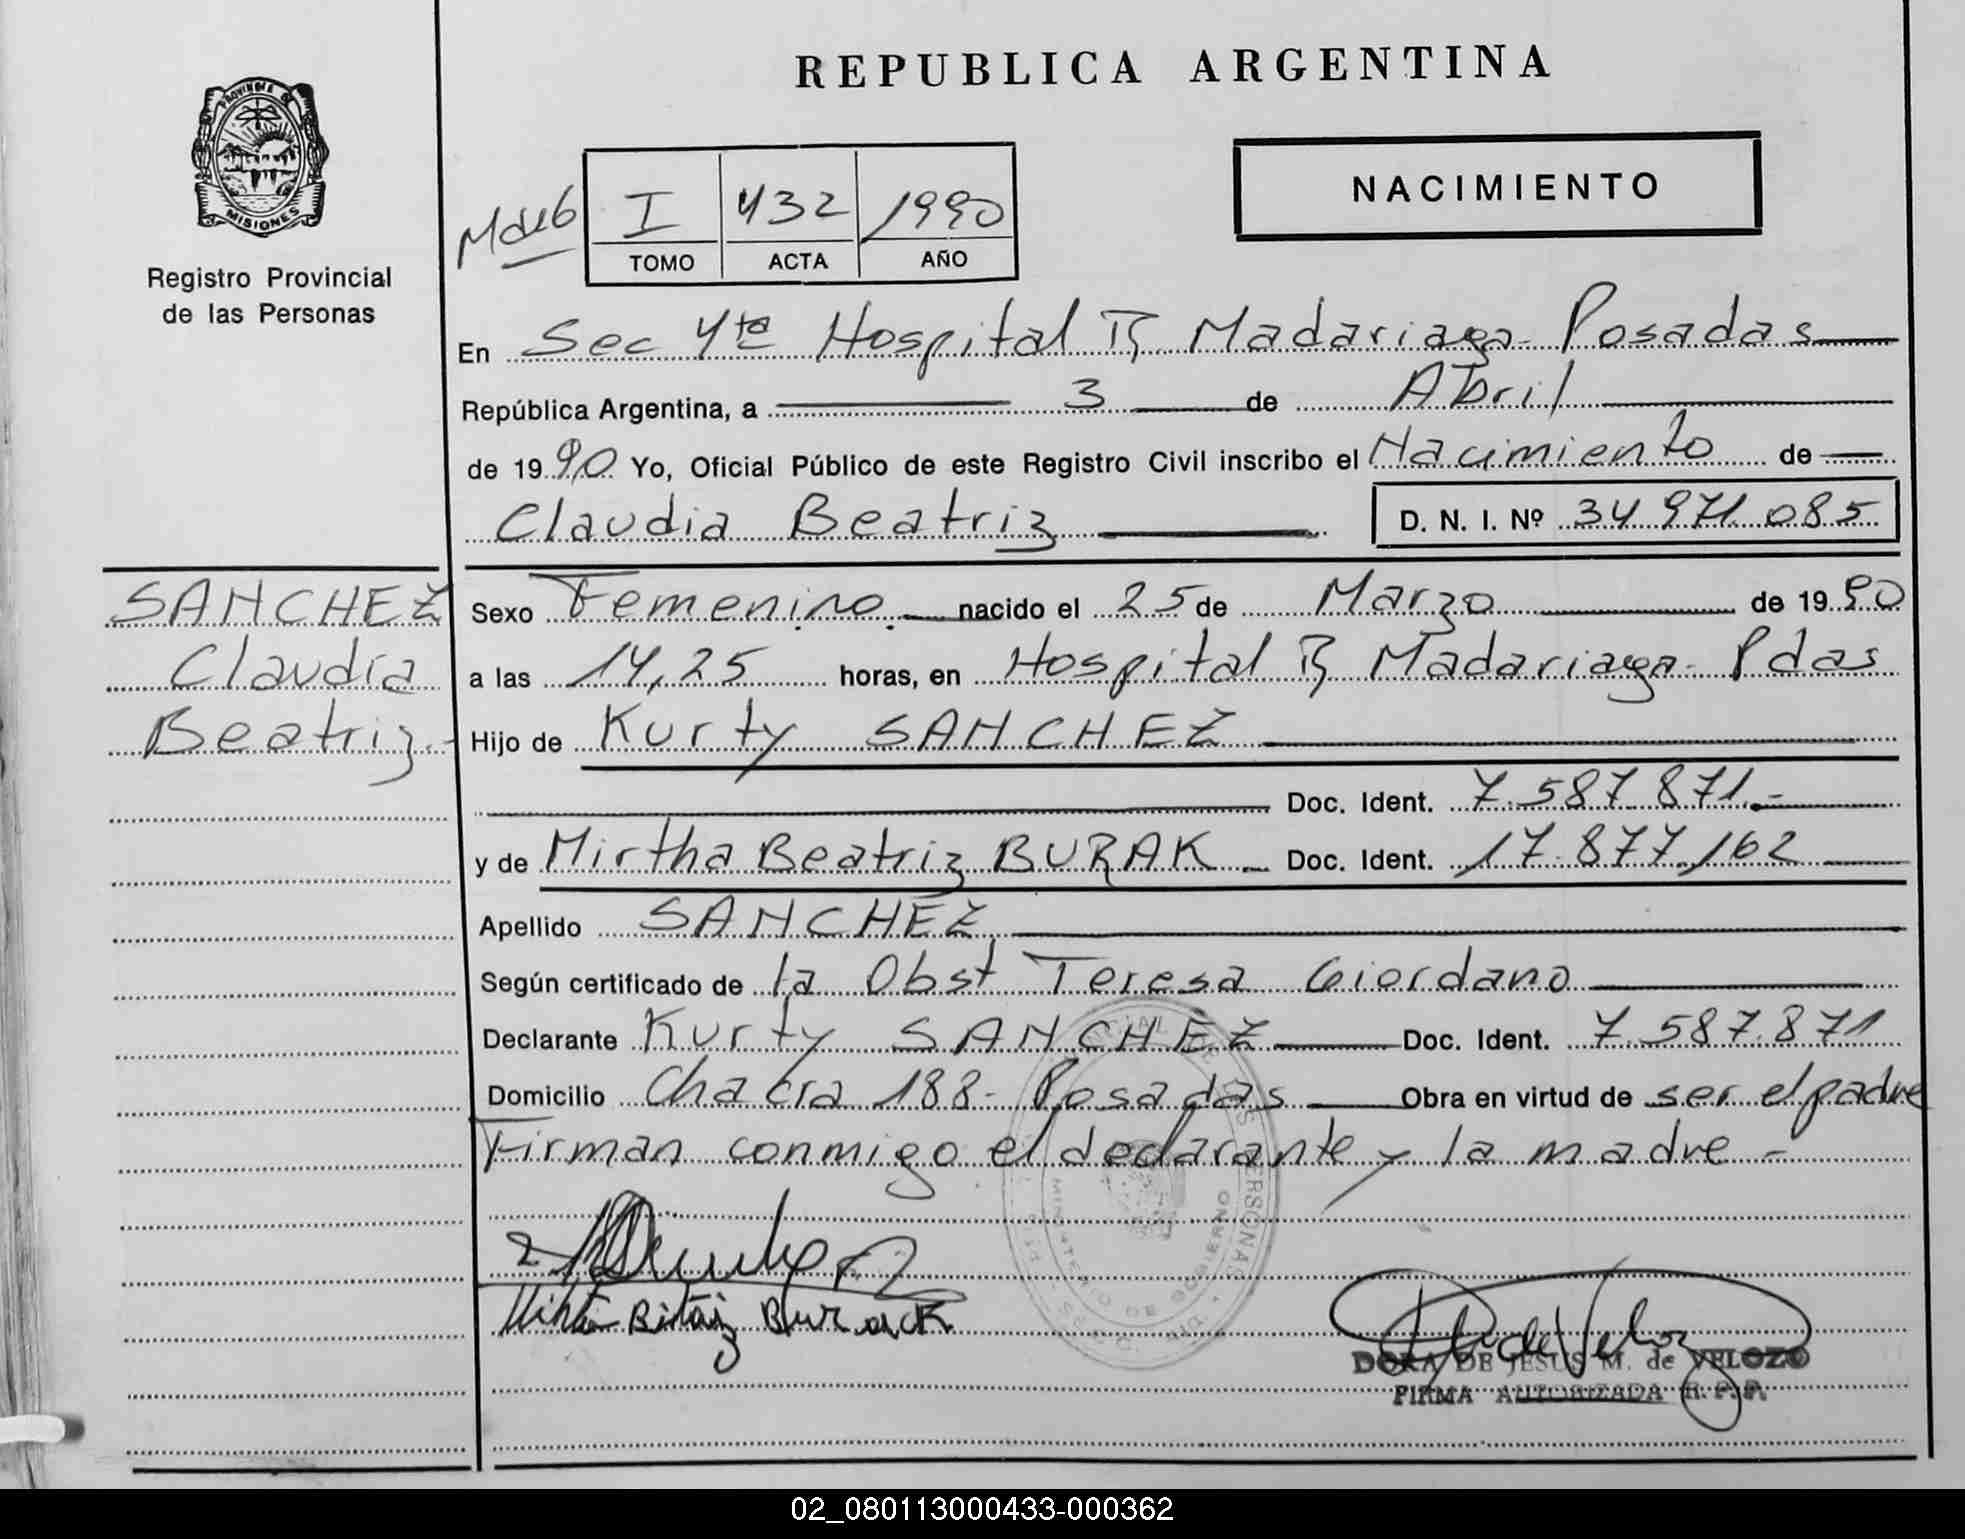 REPUBLICA ARGENTINA
PROVINCIA DE
MISIONES
Registro Provincial
de las Personas
NACIMIENTO
I 432 1990
TOMO ACTA AÑO
En Sec 4ta Hospital R Madariaga - Posadas
República Argentina, a 3 de Abril
de 1990 Yo, Oficial Público de este Registro Civil inscribo el Nacimiento de
Claudia Beatriz D. N. I. Nº 34 971 085
SANCHEZ
Claudia
Beatriz.-
Sexo Femenino nacido el 25 de Marzo de 1990
a las 14,25 horas, en Hospital R Madariaga - Pdas
Hijo de Kurty SANCHEZ
Doc. Ident. 7.587.871.-
y de Mirtha Beatriz BURAK Doc. Ident. 17.877.162
Apellido SANCHEZ
Según certificado de la Obst Teresa Giordano
Declarante Kurty SANCHEZ Doc. Ident. 7.587.871
Domicilio Chacra 188 - Posadas Obra en virtud de ser el padre
Firman conmigo el declarante y la madre -
MINISTERIO DE GOBIERNO
Burack
DORA DE JESUS M. de VELOZO
FIRMA AUTORIZADA R. P. P.
02_080113000433-000362